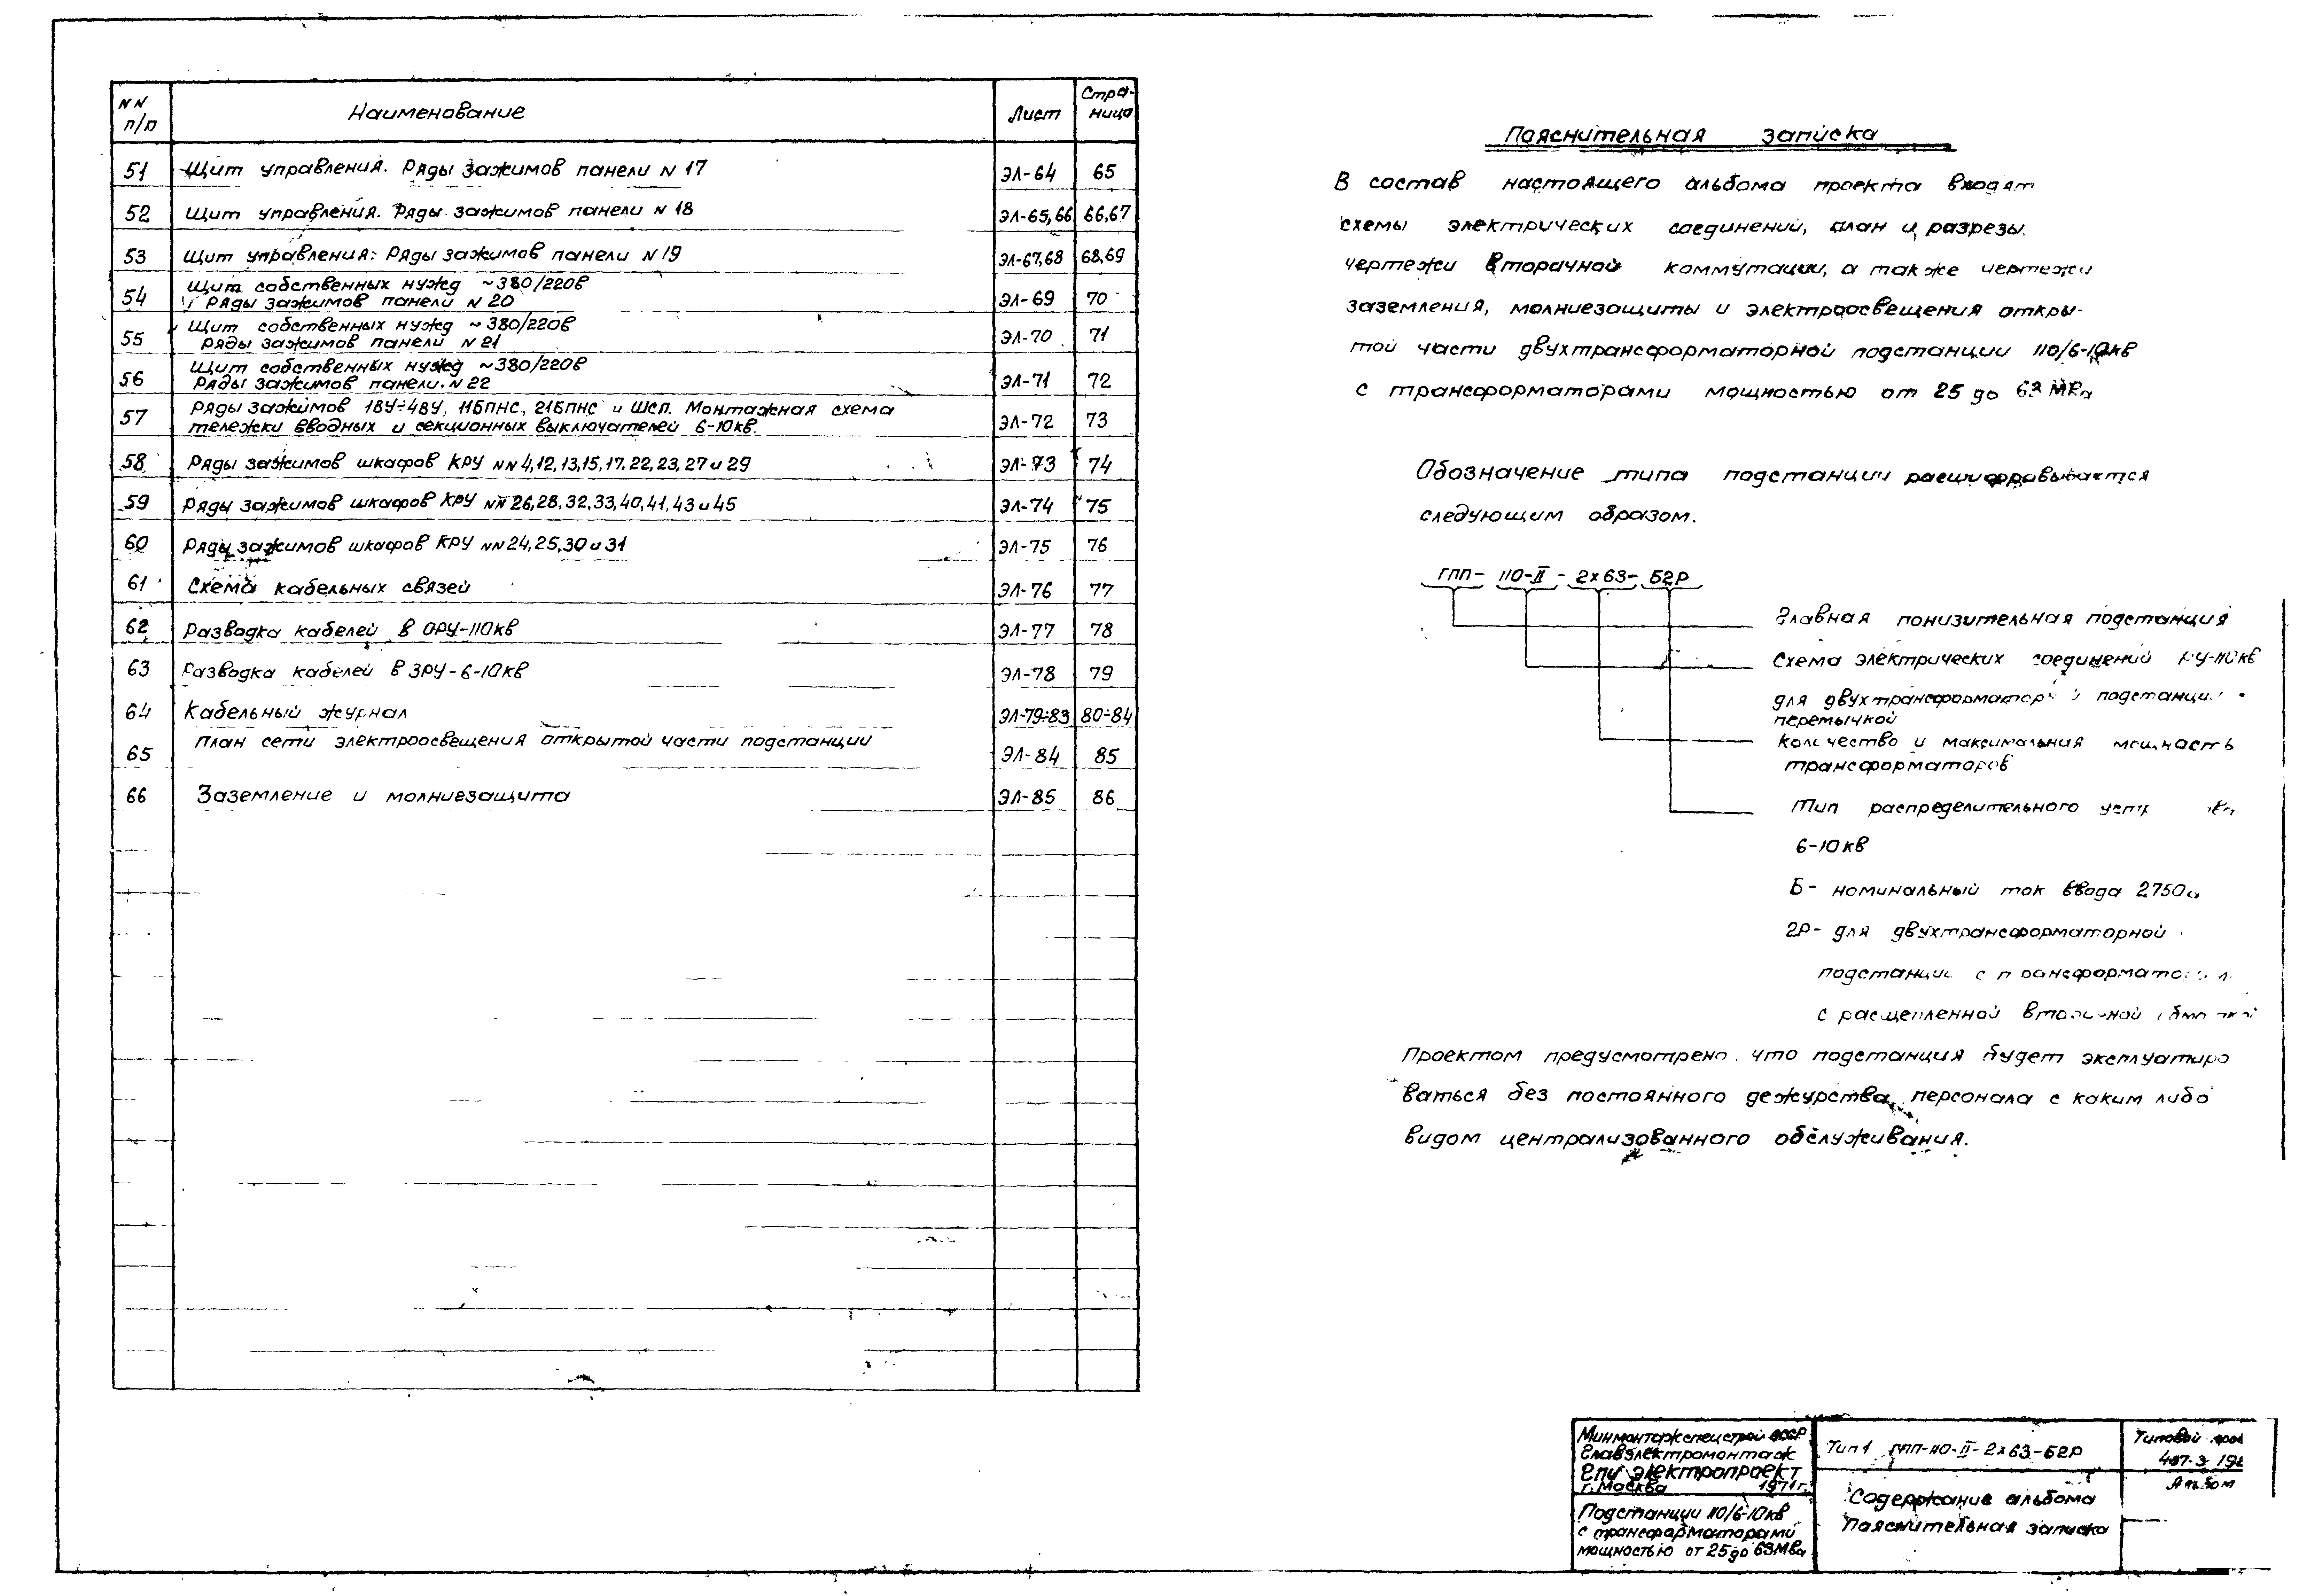 NN п/п Наименование Лист Стра-ница
51 Щит управления. Ряды зажимов панели N 17 ЭЛ-64 65
52 Щит управления. Ряды зажимов панели N 18 ЭЛ-65,66 66,67
53 Щит управления: Ряды зажимов панели N 19 ЭЛ-67,68 68,69
54 Щит собственных нужд ~380/220в
Ряды зажимов панели N 20 ЭЛ-69 70
55 Щит собственных нужд ~380/220в
Ряды зажимов панели N 21 ЭЛ-70 71
56 Щит собственных нужд ~380/220в
Ряды зажимов панели N 22 ЭЛ-71 72
57 Ряды зажимов 1ВУ÷4ВУ, 11БПНС, 21БПНС и ШСП. Монтажная схема
тележки вводных и секционных выключателей 6-10кв. ЭЛ-72 73
58 Ряды зажимов шкафов КРУ NN 4,12,13,15,17,22,23,27 и 29 ЭЛ-73 74
59 Ряды зажимов шкафов КРУ NN 26,28,32,33,40,41,43 и 45 ЭЛ-74 75
60 Ряды зажимов шкафов КРУ NN 24,25,30 и 31 ЭЛ-75 76
61 Схема кабельных связей ЭЛ-76 77
62 Разводка кабелей в ОРУ-110кв ЭЛ-77 78
63 Разводка кабелей в ЗРУ-6-10кв ЭЛ-78 79
64 Кабельный журнал ЭЛ-79÷83 80÷84
65 План сети электроосвещения открытой части подстанции ЭЛ-84 85
66 Заземление и молниезащита ЭЛ-85 86
Пояснительная записка
В состав настоящего альбома проекта входят
схемы электрических соединений, план и разрезы.
чертежи вторичной коммутации, а также чертежи
заземления, молниезащиты и электроосвещения откры-
той части двухтрансформаторной подстанции 110/6-10кв
с трансформаторами мощностью от 25 до 63 МВа
Обозначение типа подстанции расшифровывается
следующим образом.
ГПП- 110-II - 2х63- Б2Р
Главная понизительная подстанция
Схема электрических соединений РУ-110кв
для двухтрансформаторной подстанции
перемычкой
Количество и максимальная мощность
трансформаторов
Тип распределительного
6-10кв
Б- номинальный ток ввода 2750а
2Р- для двухтрансформаторной
подстанции с
с расщепленной вторичной
Проектом предусмотрено что подстанция будет эксплуатиро
ваться без постоянного дежурства персонала с каким либо
видом централизованного обслуживания.
Минмонтажспецстрой СССР
Главэлектромонтаж
ГПИ Электропроект
г. Москва 1971г.
Подстанции 110/6-10кв
с трансформаторами
мощностью от 25 до 63Мва
Тип 1 ГПП-110-II-2х63-Б2Р
Содержание альбома
Пояснительная записка
Типовой
407-3-
Альбом